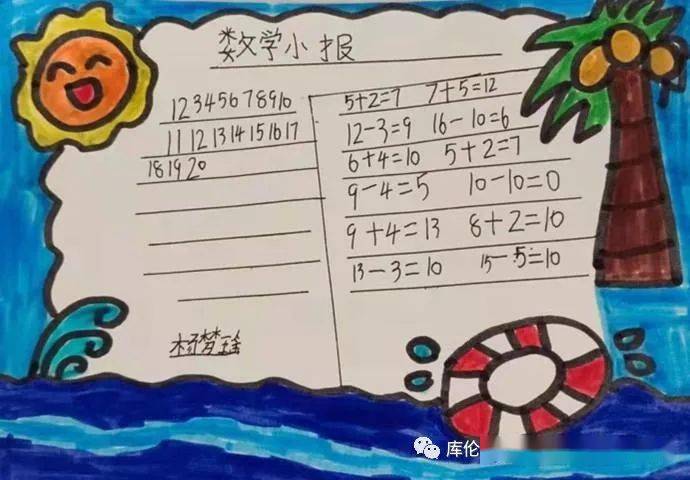 数学小报
12345678910
11 12 13 14 15 16 17
18 19 20
杨梦瑶
5+2=7 7+5=12
12-3=9 16-10=6
6+4=10 5+2=7
9-4=5 10-10=0
9+4=13 8+2=10
13-3=10 15-5=10
库伦